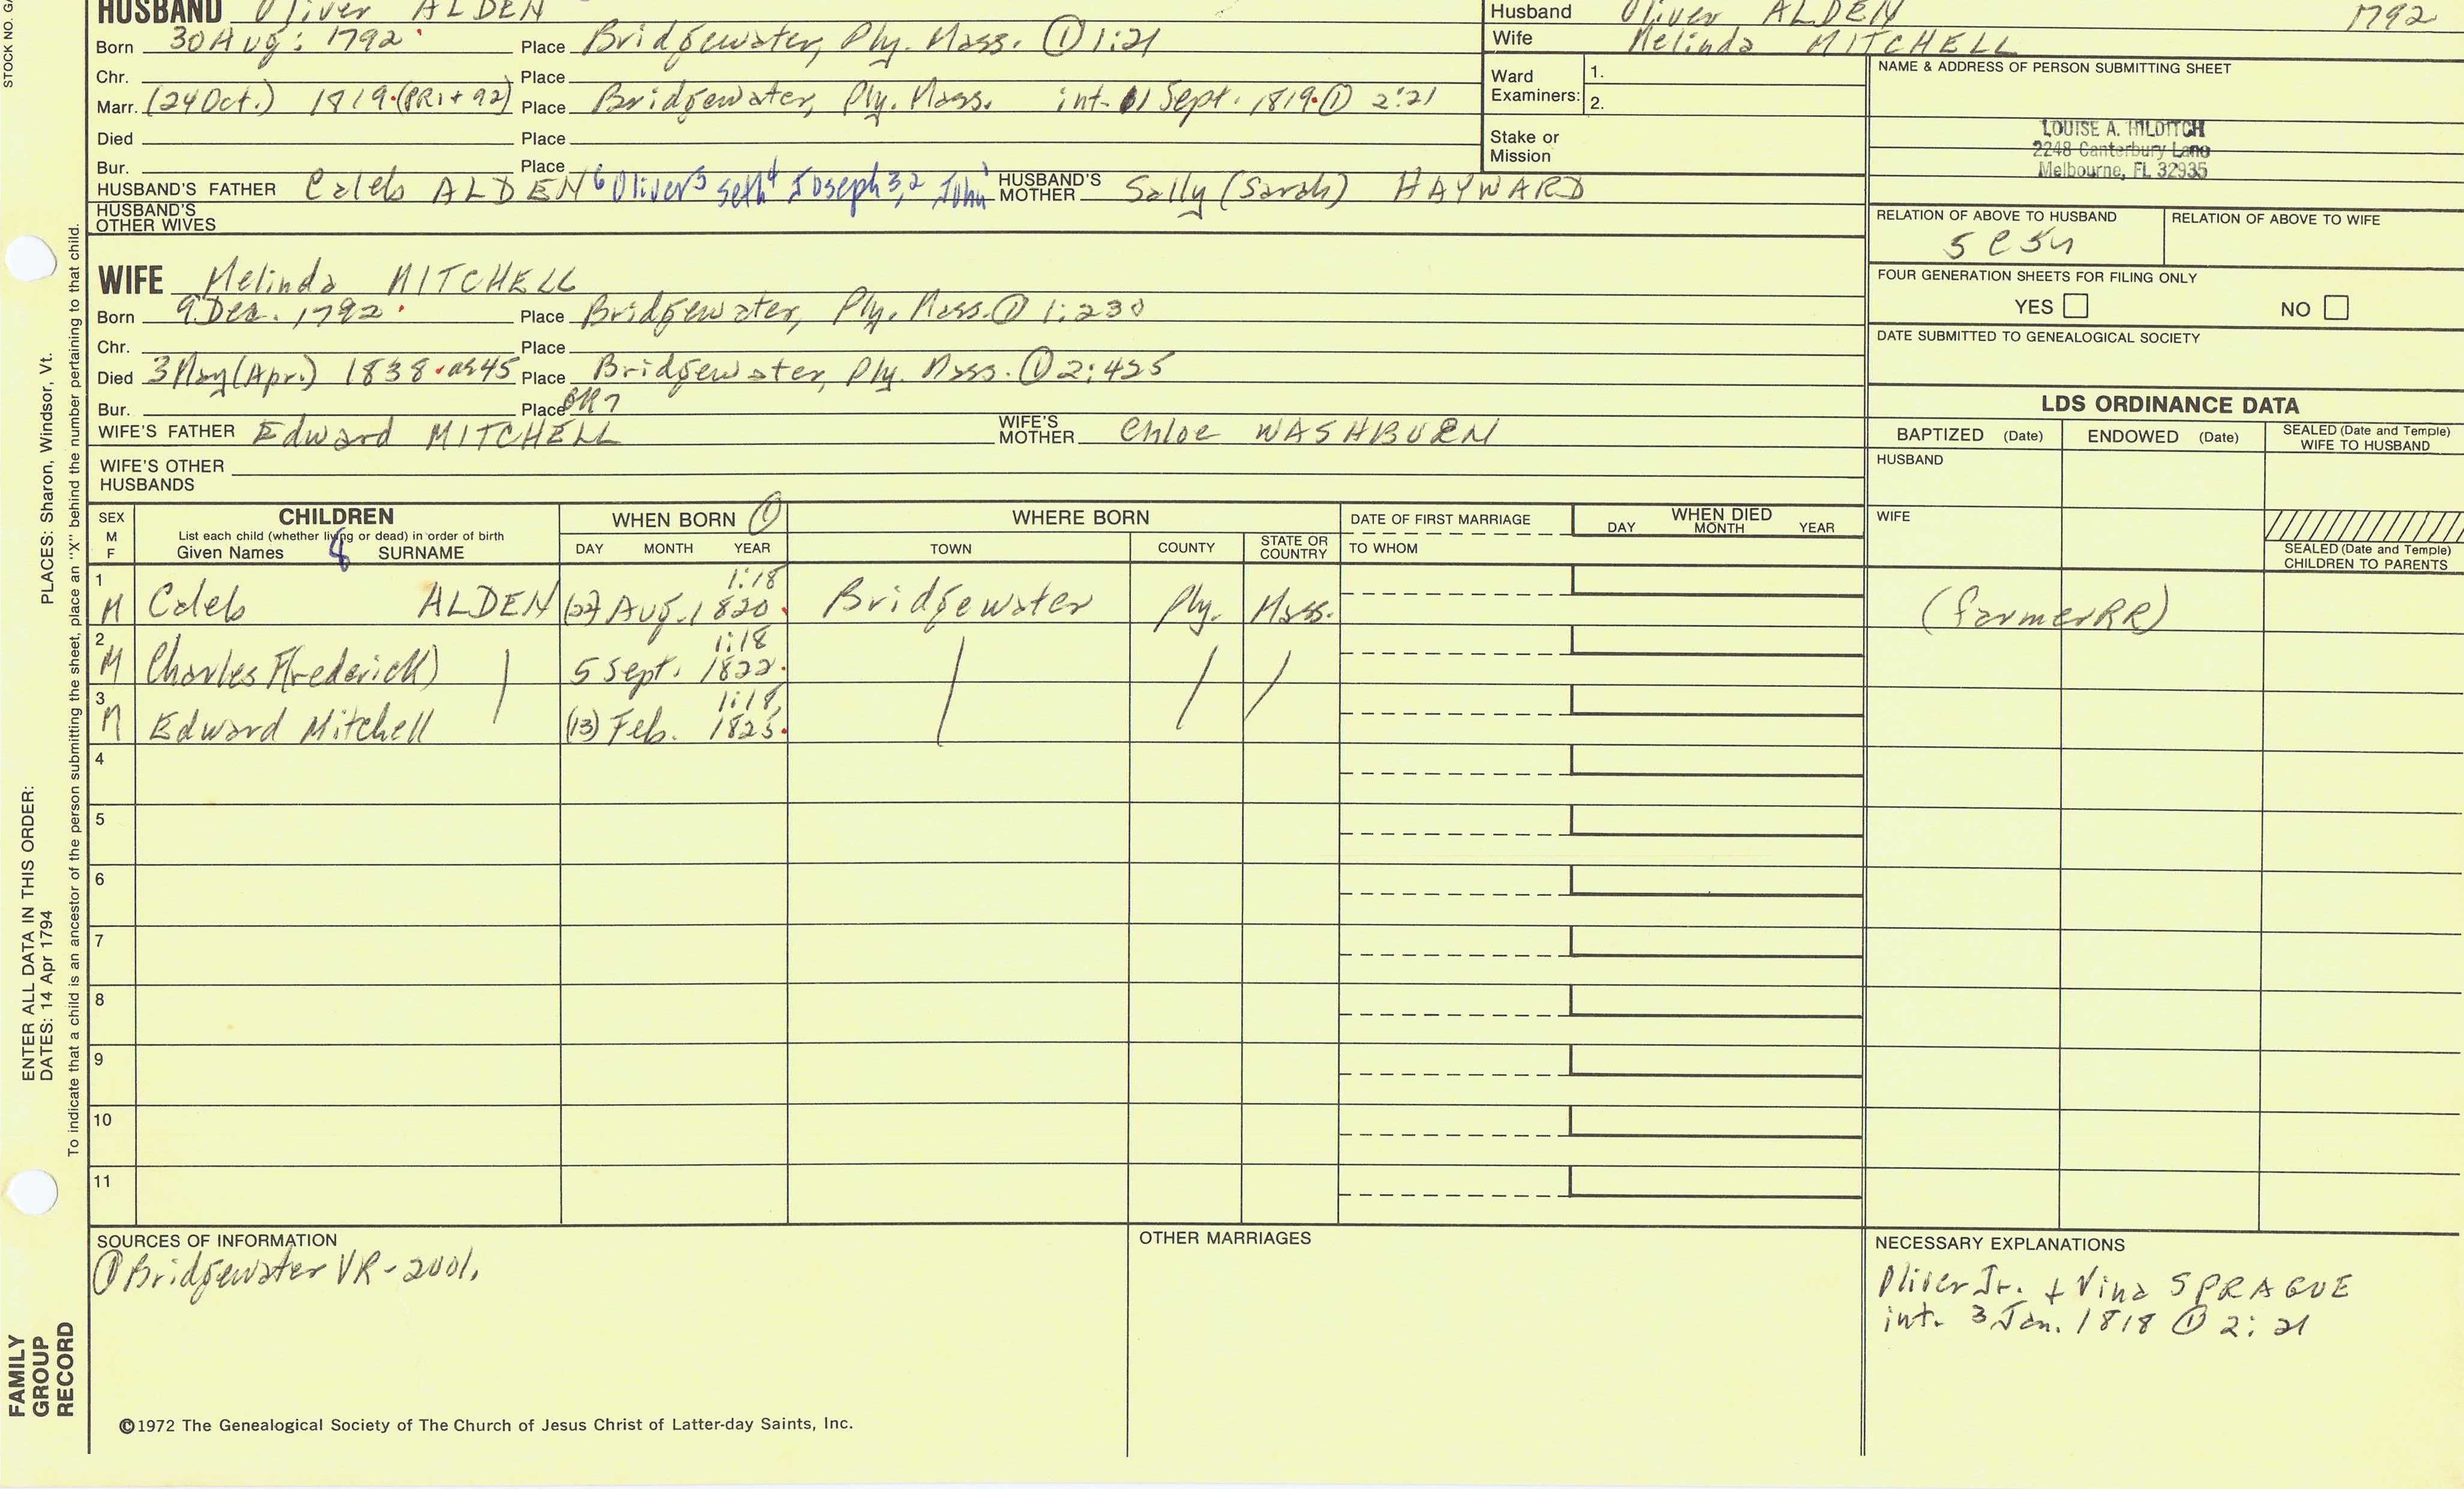 STOCK NO. GA
PLACES: Sharon, Windsor, Vt.
ENTER ALL DATA IN THIS ORDER:
DATES: 14 Apr 1794
To indicate that a child is an ancestor of the person submitting the sheet, place an "X" behind the number pertaining to that child.
FAMILY
GROUP
RECORD
HUSBAND Oliver ALDEN
Born 30 Aug: 1792 Place Bridgewater, Ply. Mass. ① 1:21
Chr. Place
Marr. (24 Oct.) 1819 (PR1+92) Place Bridgewater, Ply. Mass. int. 11 Sept. 1819 ① 2:21
Died Place
Bur. Place
HUSBAND'S FATHER Caleb ALDEN 6 Oliver5 Seth4 Joseph3,2 John1 HUSBAND'S MOTHER Sally (Sarah) HAYWARD
HUSBAND'S OTHER WIVES
WIFE Melinda MITCHELL
Born 9 Dec. 1792 Place Bridgewater, Ply. Mass. ① 1:230
Chr. Place
Died 3 May (Apr.) 1838 ae45 Place Bridgewater, Ply. Mass. ① 2:425
Bur. Place GR7
WIFE'S FATHER Edward MITCHELL WIFE'S MOTHER Chloe WASHBURN
WIFE'S OTHER HUSBANDS
Husband Oliver ALDEN 1792
Wife Melinda MITCHELL
Ward Examiners: 1.
2.
Stake or Mission
NAME & ADDRESS OF PERSON SUBMITTING SHEET
LOUISE A. HILDITCH
2248 Canterbury Lane
Melbourne, FL 32935
RELATION OF ABOVE TO HUSBAND RELATION OF ABOVE TO WIFE
5C5r
FOUR GENERATION SHEETS FOR FILING ONLY
YES NO
DATE SUBMITTED TO GENEALOGICAL SOCIETY
LDS ORDINANCE DATA
BAPTIZED (Date) ENDOWED (Date) SEALED (Date and Temple) WIFE TO HUSBAND
HUSBAND
WIFE
SEALED (Date and Temple) CHILDREN TO PARENTS
SEX M F CHILDREN WHEN BORN ① WHERE BORN DATE OF FIRST MARRIAGE WHEN DIED
List each child (whether living or dead) in order of birth
Given Names 8 SURNAME DAY MONTH YEAR TOWN COUNTY STATE OR COUNTRY TO WHOM DAY MONTH YEAR
1 1:18
M Caleb ALDEN (22) Aug. 1820 Bridgewater Ply. Mass. (farmerRR)
2 1:18
M Charles F(rederick) 5 Sept. 1822
3 1:18
M Edward Mitchell (13) Feb. 1825
4
5
6
7
8
9
10
11
SOURCES OF INFORMATION
① Bridgewater VR-2001.
OTHER MARRIAGES
NECESSARY EXPLANATIONS
Oliver Jr. + Vina SPRAGUE
int. 3 Jan. 1818 ① 2:21
©1972 The Genealogical Society of The Church of Jesus Christ of Latter-day Saints, Inc.